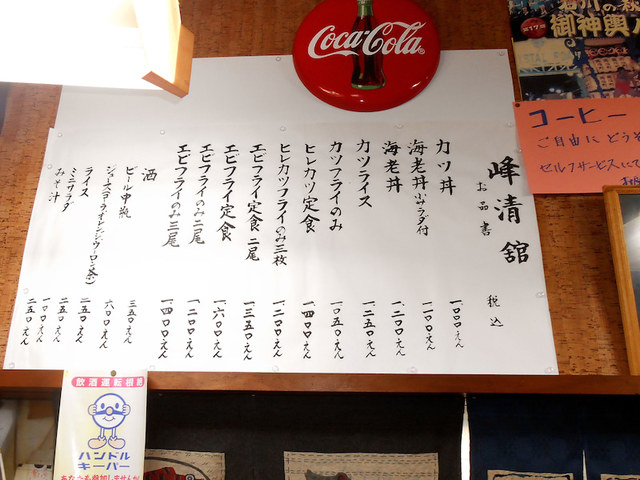 峰清舘
お品書
税込
カツ丼 一、〇〇〇えん
海老丼小サラダ付 一、一〇〇えん
海老丼 一、二〇〇えん
カツライス 一、二五〇えん
カツフライのみ 一、〇五〇えん
ヒレカツ定食 一、四〇〇えん
ヒレカツフライのみ三枚 一、二〇〇えん
エビフライ定食 二尾 一、三五〇えん
エビフライ定食 一、六〇〇えん
エビフライのみ二尾 一、二〇〇えん
エビフライのみ三尾 一、四〇〇えん
酒 三五〇えん
ビール中瓶 六〇〇えん
ジュース(コーラ・オレンジ・ウーロン茶) 二五〇えん
ライス 二五〇えん
ミニサラダ 一〇〇えん
みそ汁 二五〇えん
Coca-Cola
御神輿
コーヒー
ご自由にどうぞ
セルフサービスにて
飲酒運転根絶
ハンドル
キーパー
あなたも参加しませんか